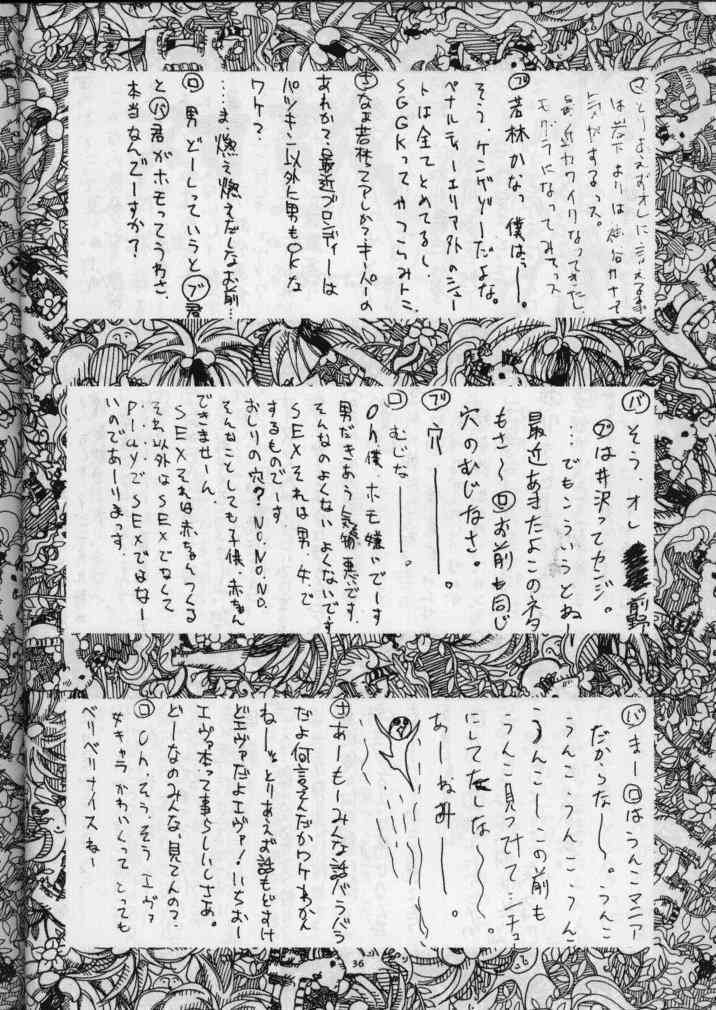 マ とりあえずオレに言える事
は岩下よりは
気がするっス。
最近カワイクなってきたし
モグラになってみてっス
ブ 若林かなっ 僕はっー。
そう、ケンゲゾーだよな。
ペナルティーエリア外のシュー
トは全てとめてるし、
SGGKってやつらみトこ、
キ なぁ若林ってアレか?キーパーの
あれか?最近ブロンディーは
パツキン以外に男もOKな
ワケ?
…ま、燃え燃えだしなお前…
ロ 男どーしっていうとブ君
とバ君がホモってうわさ、
本当なんでーすか?
バ そう、オレ 前野
ブは井沢ってカンジ。
…でもこういうとねー
最近あきたよこのネタ
もさ〜ロお前も同じ
穴のむじなさ。
ブ 穴ーーー。
ロ むじなーーー。
Oh僕、ホモ嫌いでーす
男だきあう気物悪です。
そんなのよくないよくないです
SEXそれは男、女で
するものでーす。
おしりの穴?NO.NO.NO.
そんなことしても子供、赤ちゃん
できませーん。
SEXそれは赤ちゃんつくる
それ以外はSEXでなくして
……PLAYでSEXではなー
いのであーりまっす。
バ まーロはうんこマニア
だからなーー。うんこ
うんこ、うんこ、うんこ
うんこーこの前も
うんこ見っけてシチュ
にしてたしなー〜〜。
あーねみーー。
キ あーもーみんな話がバラバラ
だよ何言ってんだかワケわかん
ねーッとりあえず話もどすけ
どエヴァだよエヴァ!いちおー
エヴァ本って事らしいしさぁ。
どーなのみんな、見てんの?、
ロ Oh、そう、そう エヴァ
女キャラかわいくってとっても
ベリベリナイスねー
36